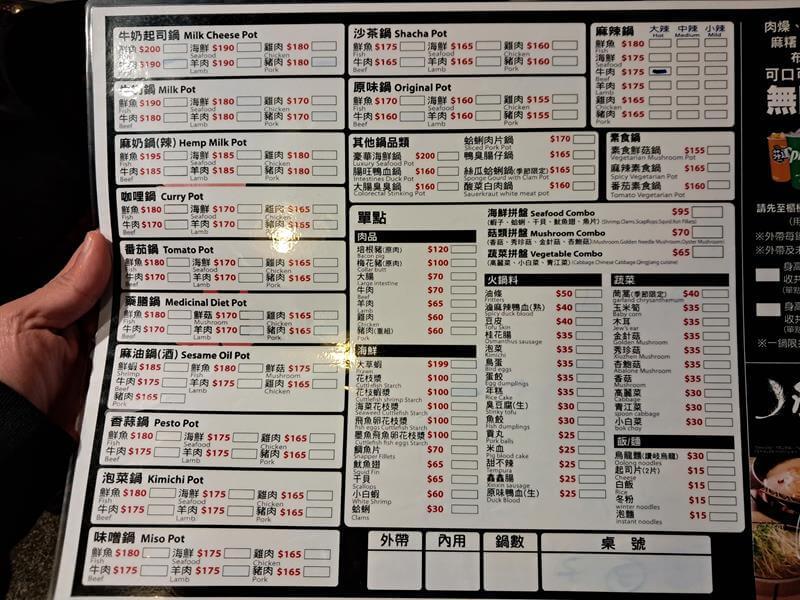 牛奶起司鍋 Milk Cheese Pot
鮮魚 $200 海鮮 $190 雞肉 $180
Seafood Chicken
牛肉 $190 羊肉 $190 豬肉 $180
Beef Lamb Pork
牛奶鍋 Milk Pot
鮮魚 $190 海鮮 $180 雞肉 $170
Fish Seafood Chicken
牛肉 $180 羊肉 $180 豬肉 $170
Beef Lamb Pork
麻奶鍋(辣) Hemp Milk Pot
鮮魚 $195 海鮮 $185 雞肉 $180
Fish Seafood Chicken
牛肉 $185 羊肉 $185 豬肉 $180
Beef Lamb Pork
咖哩鍋 Curry Pot
鮮魚 $180 海鮮 $170 雞肉
Fish Seafood
牛肉 $170 羊肉 $170 豬肉 $165
Beef Lamb Pork
番茄鍋 Tomato Pot
鮮魚 $180 海鮮 $170 雞肉
Fish Seafood Chicken
牛肉 $170 羊肉 $170 豬肉
Beef Lamb Pork
藥膳鍋 Medicinal Diet Pot
鮮魚 $180 鮮菇 $170 雞肉 $165
Fish Mushroom Chicken
牛肉 $170 羊肉 $170 豬肉 $165
Beef Lamb Pork
麻油鍋(酒) Sesame Oil Pot
鮮蝦 $185 鮮魚 $180 鮮菇 $175
Shrimp Fish Mushroom
牛肉 $175 羊肉 $175 雞肉 $165
Beef Lamb Chicken
豬肉 $165
Pork
香蒜鍋 Pesto Pot
鮮魚 $180 海鮮 $175 雞肉 $165
Fish Seafood Chicken
牛肉 $175 羊肉 $175 豬肉 $165
Beef Lamb Pork
泡菜鍋 Kimichi Pot
鮮魚 $180 海鮮 $175 雞肉 $165
Fish Seafood Chicken
牛肉 $175 羊肉 $175 豬肉 $165
Beef Lamb Pork
味噌鍋 Miso Pot
鮮魚 $180 海鮮 $175 雞肉 $165
Fish Seafood Chicken
牛肉 $175 羊肉 $175 豬肉 $165
Beef Lamb Pork
沙茶鍋 Shacha Pot
鮮魚 $175 海鮮 $165 雞肉 $160
Fish Seafood Chicken
牛肉 $165 羊肉 $165 豬肉 $160
Beef Lamb Pork
原味鍋 Original Pot
鮮魚 $170 海鮮 $160 雞肉 $155
Fish Seafood Chicken
牛肉 $160 羊肉 $160 豬肉 $155
Beef Lamb Pork
麻辣鍋 大辣 中辣 小辣
Hot Medium Mild
鮮魚 $180
Fish
海鮮 $175
Seafood
牛肉 $175
Beef
羊肉 $175
Lamb
雞肉 $165
Chicken
豬肉 $165
Pork
其他鍋品類
豪華海鮮鍋 $200
Luxury Seafood Pot
腸旺鴨血鍋 $160
Intestines Duck Pot
大腸臭臭鍋 $160
Colorectal Stinking Pot
蛤蜊肉片鍋 $170
Sliced Pork Pot
鴨臭腸仔鍋 $165
絲瓜蛤蜊鍋(季節限定) $165
Sponge Gourd with Clam Pot
酸菜白肉鍋 $160
Sauerkraut white meat pot
素食鍋
素食鮮菇鍋 $155
Vegetarian Mushroom Pot
麻辣素食鍋 $165
Spicy Vegetarian Pot
番茄素食鍋 $160
Tomato Vegetarian Pot
單點
海鮮拼盤 Seafood Combo $95
菇類拼盤 Mushroom Combo $70
(香菇、秀珍菇、金針菇、杏鮑菇)
蔬菜拼盤 Vegetable Combo $65
(高麗菜、小白菜、青江菜)
肉品
培根豬(原肉) $120
Bacon pig
梅花豬(原肉) $100
Collar butt
大腸 $70
Large intestine
牛肉 $70
Beef
羊肉 $65
Lamb
雞肉 $60
Chicken
豬肉(重組) $60
Pork
海鮮
大草蝦 $199
Prawn
花枝漿 $100
Cuttlefish Starch
花枝蝦漿 $100
Cuttlefish shrimp Starch
海菜花枝漿 $100
Seaweed Cuttlefish Starch
飛魚卵花枝漿 $100
fish eggs Cuttlefish Starch
墨魚飛魚卵花枝漿 $100
Cuttlefish fish eggs Starch
鯛魚片 $70
Snapper Fillets
魷魚翅 $65
Squid Fin
干貝 $65
Scallops
小白蝦 $60
White Shrimp
蛤蜊 $30
Clams
火鍋料
油條 $50
Fritters
滷麻辣鴨血(熟) $40
Spicy duck blood
豆皮 $40
Tofu Skin
桂花腸 $35
Osmanthus sausage
泡菜 $35
Kimichi
鳥蛋 $35
Bird eggs
蛋餃 $35
Egg dumplings
年糕 $35
Rice Cake
臭豆腐(生) $30
Stinky tofu
魚餃 $30
Fish dumplings
貢丸 $25
Pork balls
米血 $25
Pig blood cake
甜不辣 $25
Tempura
鑫鑫腸 $25
Xinxin sausage
原味鴨血(生) $25
Duck Blood
蔬菜
茼蒿(季節限定) $40
garland chrysanthemum
玉米筍 $35
Baby corn
木耳 $35
Jew's ear
金針菇 $35
Golden Mushroom
秀珍菇 $35
Xiuzhen Mushroom
杏鮑菇 $35
Abalone Mushroom
香菇 $35
Mushroom
高麗菜 $30
Cabbage
青江菜 $30
spoon cabbage
小白菜 $30
bok choy
飯/麵
烏龍麵(讚岐烏龍) $30
Oolong noodles
起司片(2片) $15
Cheese
白飯 $15
Rice
冬粉 $15
winter noodles
泡麵 $15
instant noodles
外帶 內用 鍋數 桌號
肉燥、
麻糬
可口
無
請先至櫃
※外帶每鍋
※外帶及
身高
收井
身高
收井
※一鍋限